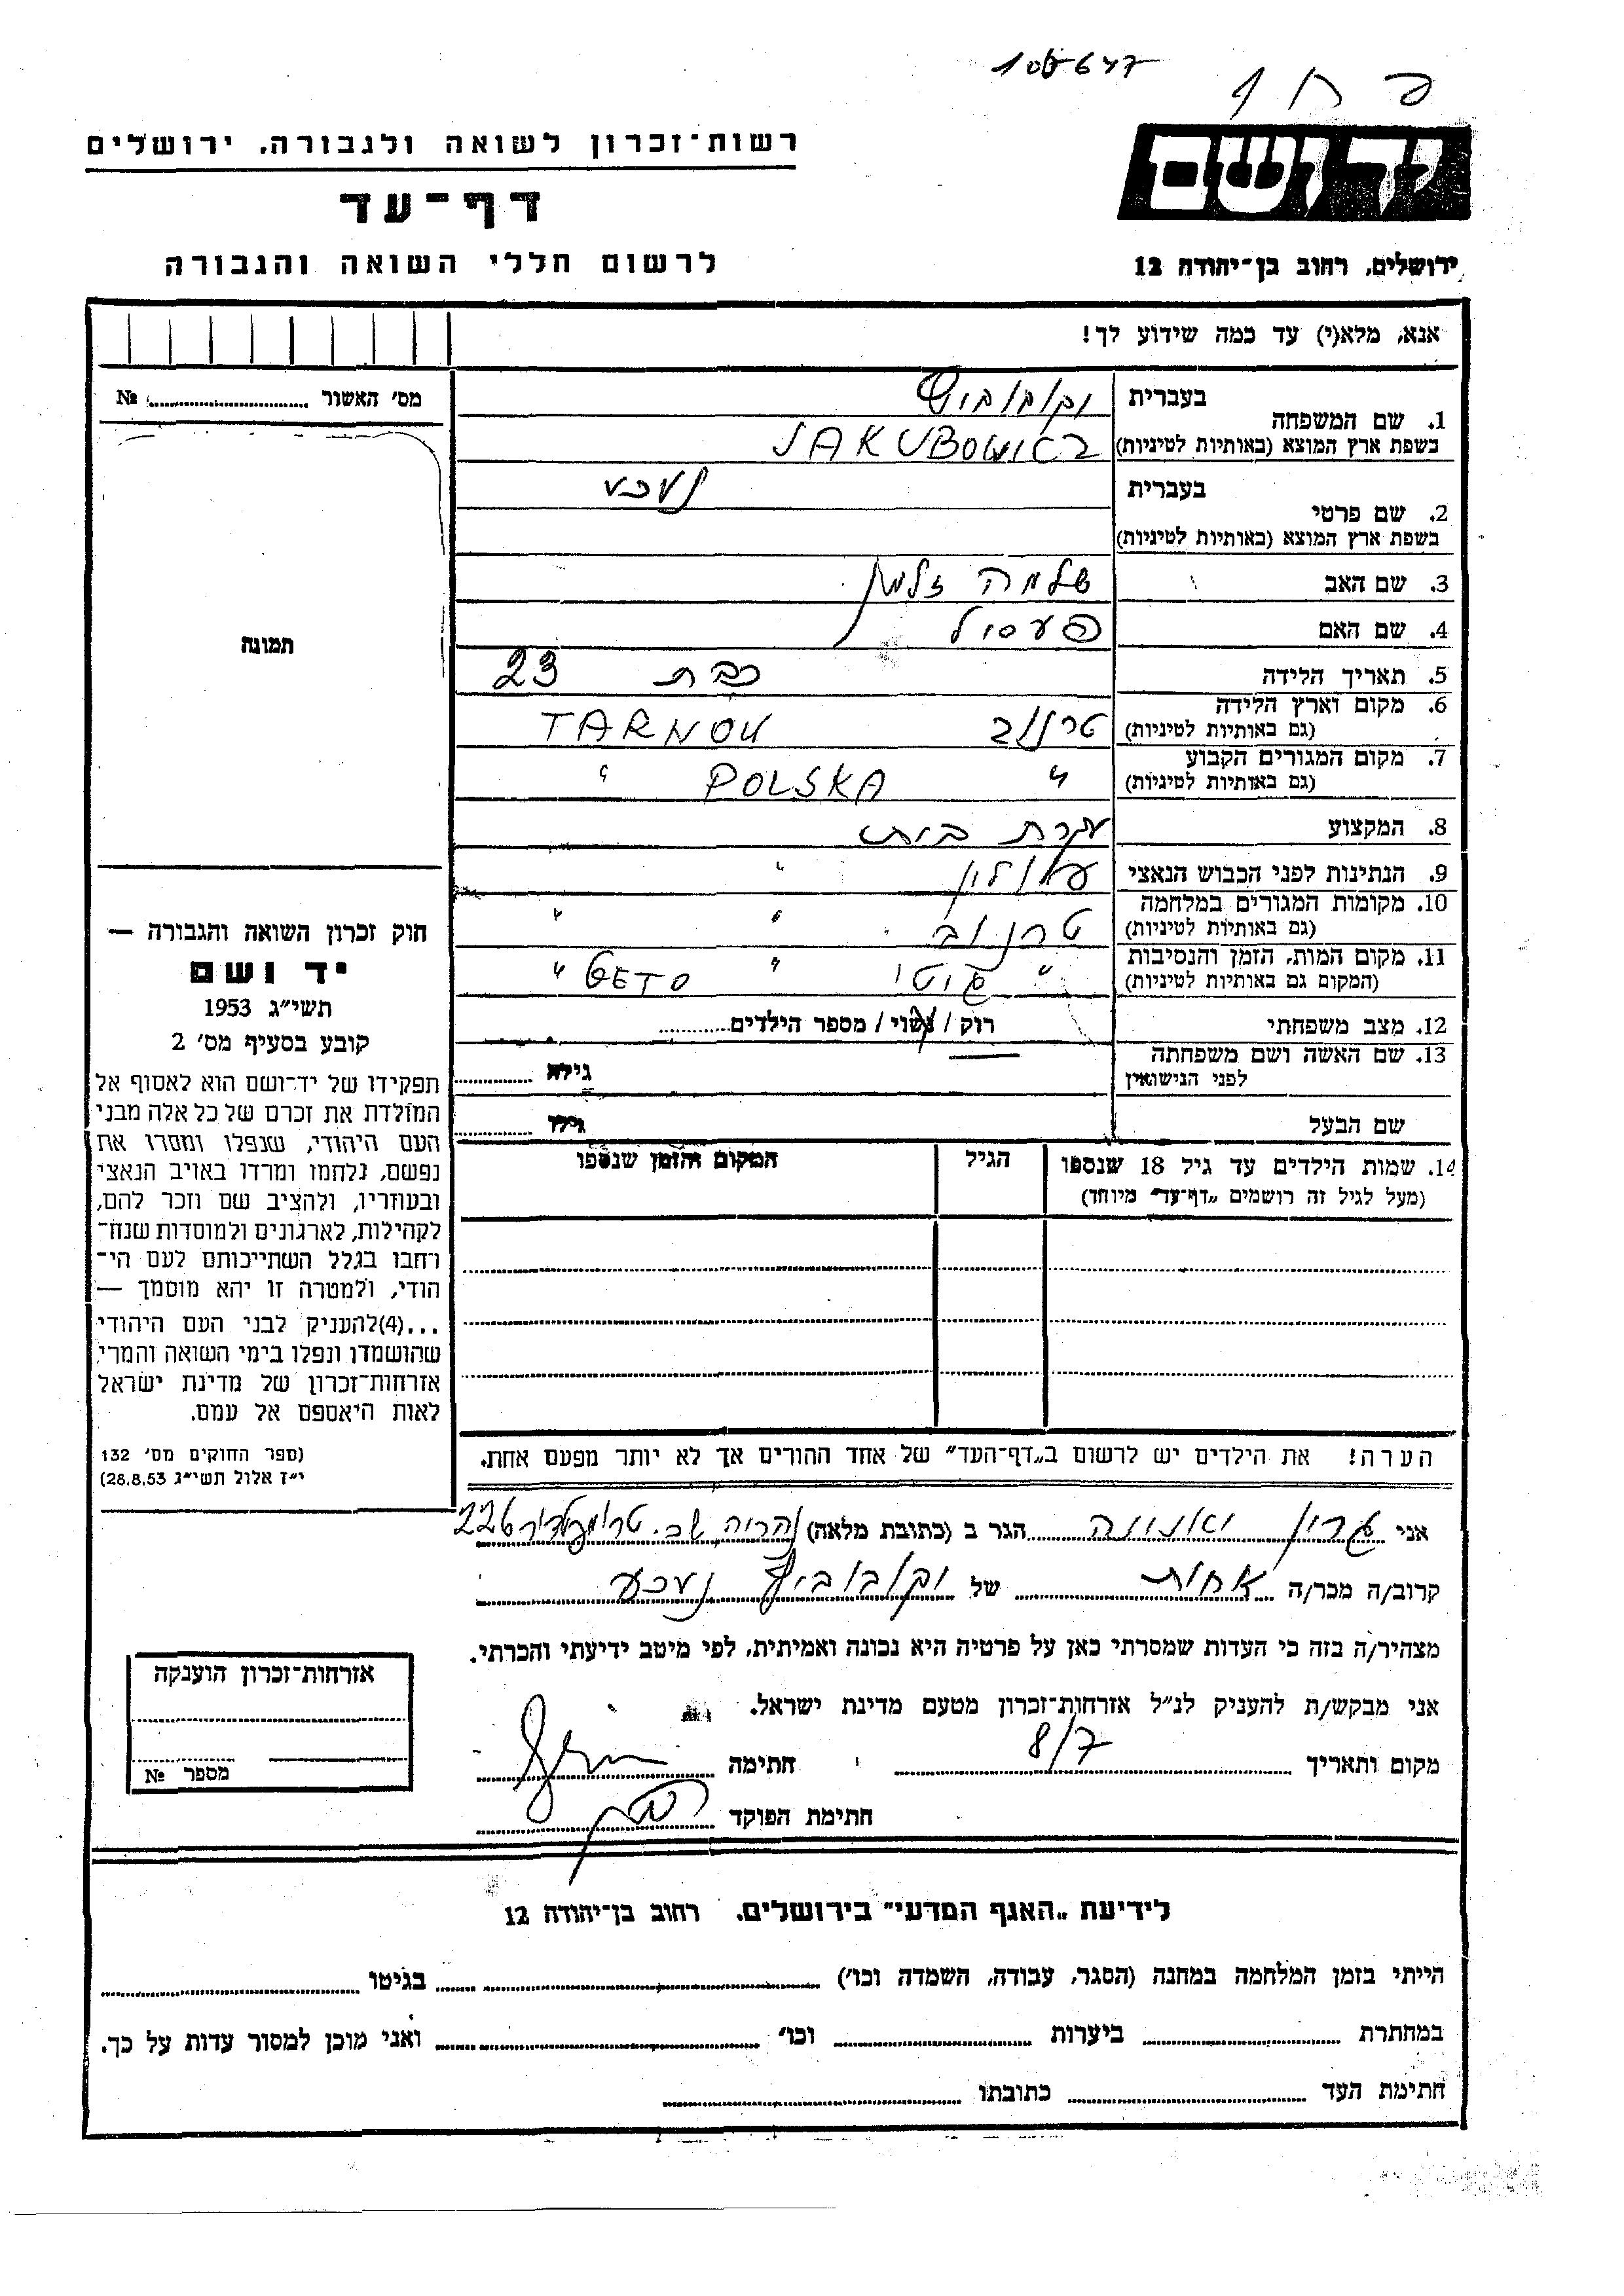 108647
יד ושם
ירושלים, רחוב בן־יהודה 12
רשות־זכרון לשואה ולגבורה, ירושלים
דף־עד
לרשום חללי השואה והגבורה
אנא, מלא(י) עד כמה שידוע לך!
מס' האשור № 
תמונה
בעברית
1. שם המשפחה
בשפת ארץ המוצא (באותיות לטיניות) JAKUBOWI
בעברית נעכע
2. שם פרטי
בשפת ארץ המוצא (באותיות לטיניות)
3. שם האב שלמה זלמן
4. שם האם
5. תאריך הלידה בבת 23
6. מקום וארץ הלידה טרנוב TARNOW
(גם באותיות לטיניות)
7. מקום המגורים הקבוע " POLSKA "
(גם באותיות לטיניות)
8. המקצוע עקרת בית
9. הנתינות לפני הכבוש הנאצי פולין "
10. מקומות המגורים במלחמה טרנוב " "
(גם באותיות לטיניות)
11. מקום המות, הזמן והנסיבות " גיטו " GETO "
(המקום גם באותיות לטיניות)
12. מצב משפחתי רוק / נשוי / מספר הילדים
13. שם האשה ושם משפחתה
לפני הנישואין גילה
שם הבעל גילו
14. שמות הילדים עד גיל 18 שנספו הגיל המקום והזמן שנספו
(מעל לגיל זה רושמים „דף־עד" מיוחד)
הערה! את הילדים יש לרשום ב„דף־העד" של אחד ההורים אך לא יותר מפעם אחת.
חוק זכרון השואה והגבורה —
יד ושם
תשי"ג 1953
קובע בסעיף מס' 2
תפקידו של יד־ושם הוא לאסוף אל
המולדת את זכרם של כל אלה מבני
העם היהודי, שנפלו ומסרו את
נפשם, נלחמו ומרדו באויב הנאצי
ובעוזריו, ולהציב שם וזכר להם,
לקהילות, לארגונים ולמוסדות שנח־
רחבו בגלל השתייכותם לעם הי־
הודי, ולמטרה זו יהא מוסמך —
...(4)להעניק לבני העם היהודי
שהושמדו ונפלו בימי השואה והמרי
אזרחות־זכרון של מדינת ישראל
לאות היאספם אל עמם.
(ספר החוקים מס' 132
י"ז אלול תשי"ג 28.8.53)
אני גרין הגר ב (כתובת מלאה) נהריה שכ. טרומפלדור 226
קרוב/ה מכר/ה אחות של יקובוביץ נעכע
מצהיר/ה בזה כי העדות שמסרתי כאן על פרטיה היא נכונה ואמיתית, לפי מיטב ידיעתי והכרתי.
אני מבקש/ת להעניק לנ"ל אזרחות־זכרון מטעם מדינת ישראל.
מקום ותאריך 8/7 חתימה
חתימת הפוקד
אזרחות־זכרון הוענקה
מספר №
לידיעת „האגף המדעי" בירושלים, רחוב בן־יהודה 12
הייתי בזמן המלחמה במחנה (הסגר, עבודה, השמדה וכו') בגיטו
במחתרת ביערות וכו' ואני מוכן למסור עדות על כך.
חתימת העד כתובתו